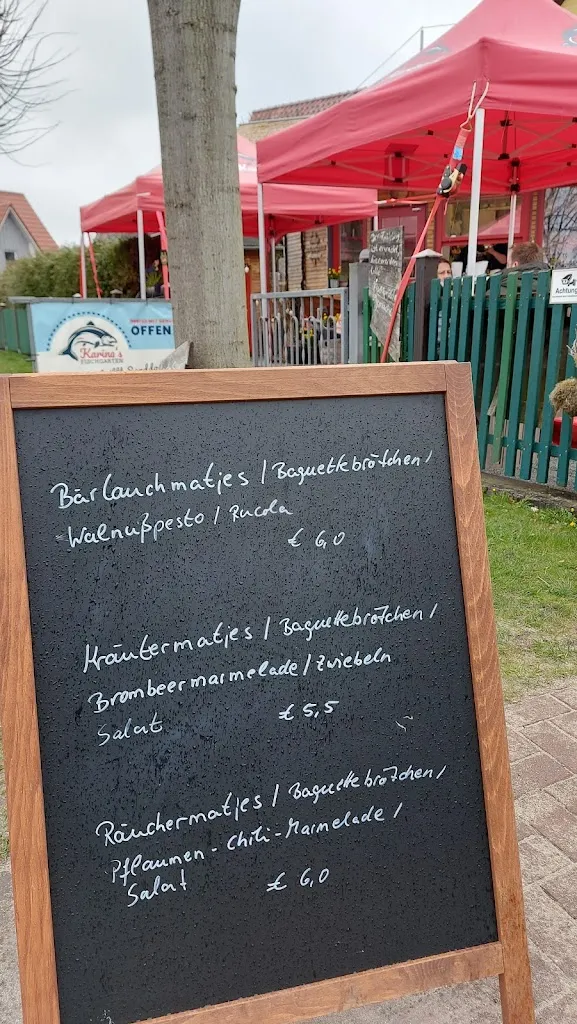 OFFEN
Karino's
FISCHGARTEN
Achtung
Bärlauchmatjes / Baguettebrötchen /
Walnußpesto / Rucola
€ 6,0
Kräutermatjes / Baguettebrötchen /
Brombeermarmelade / Zwiebeln
Salat € 5,5
Räuchermatjes / Baguettebrötchen /
Pflaumen - Chili - Marmelade /
Salat € 6,0